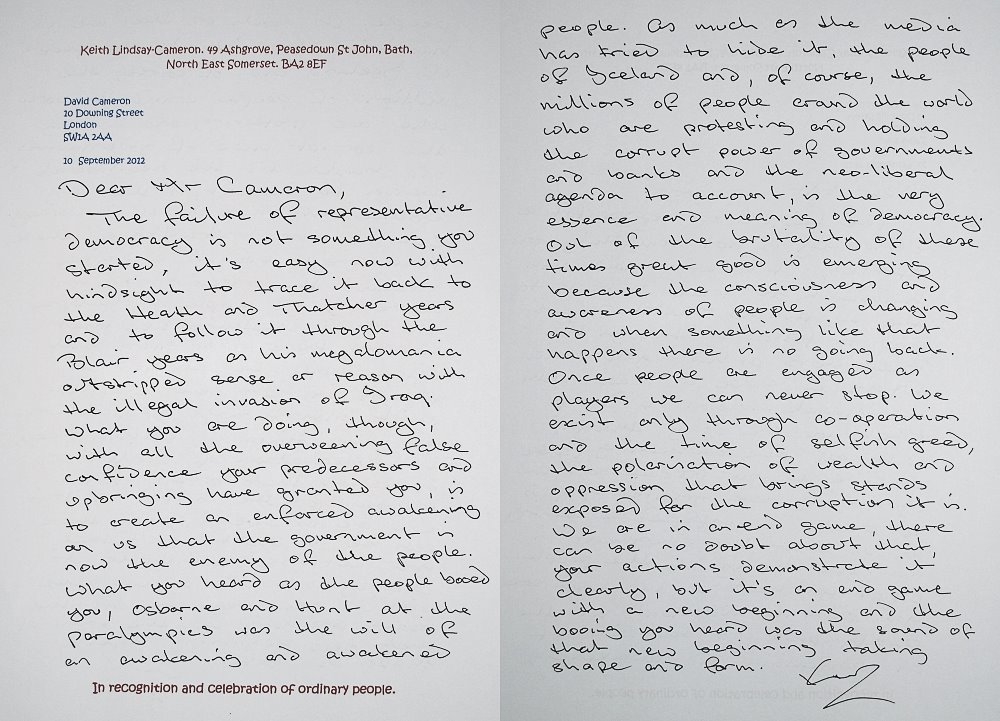 Keith Lindsay-Cameron. 49 Ashgrove, Peasedown St John, Bath,
North East Somerset. BA2 8EF
David Cameron
10 Downing Street
London
SW1A 2AA
10 September 2012
Dear Mr Cameron,
The failure of representative
democracy is not something you
started, it's easy now with
hindsight to trace it back to
the Heath and Thatcher years
and to follow it through the
Blair years as his megalomania
outstripped sense or reason with
the illegal invasion of Iraq.
What you are doing, though,
with all the overweening false
confidence your predecessors and
upbringing have granted you, is
to create an enforced awakening
on us that the government is
now the enemy of the people.
What you heard as the people booed
you, Osborne and Hunt at the
paralympics was the will of
an awakening and awakened
In recognition and celebration of ordinary people.
people. As much as the media
has tried to hide it, the people
of Iceland and, of course, the
millions of people around the world
who are protesting and holding
the corrupt power of governments
and banks and the neo-liberal
agenda to account, is the very
essence and meaning of democracy.
Out of the brutality of these
times great good is emerging
because the consciousness and
awareness of people is changing
and when something like that
happens there is no going back.
Once people are engaged as
players we can never stop. We
exist only through co-operation
and the time of selfish greed,
the polarisation of wealth and
oppression that brings stands
exposed for the corruption it is.
We are in an end game, there
can be no doubt about that,
your actions demonstrate it
clearly, but it's an end game
with a new beginning and the
booing you heard was the sound of
that new beginning taking
shape and form.